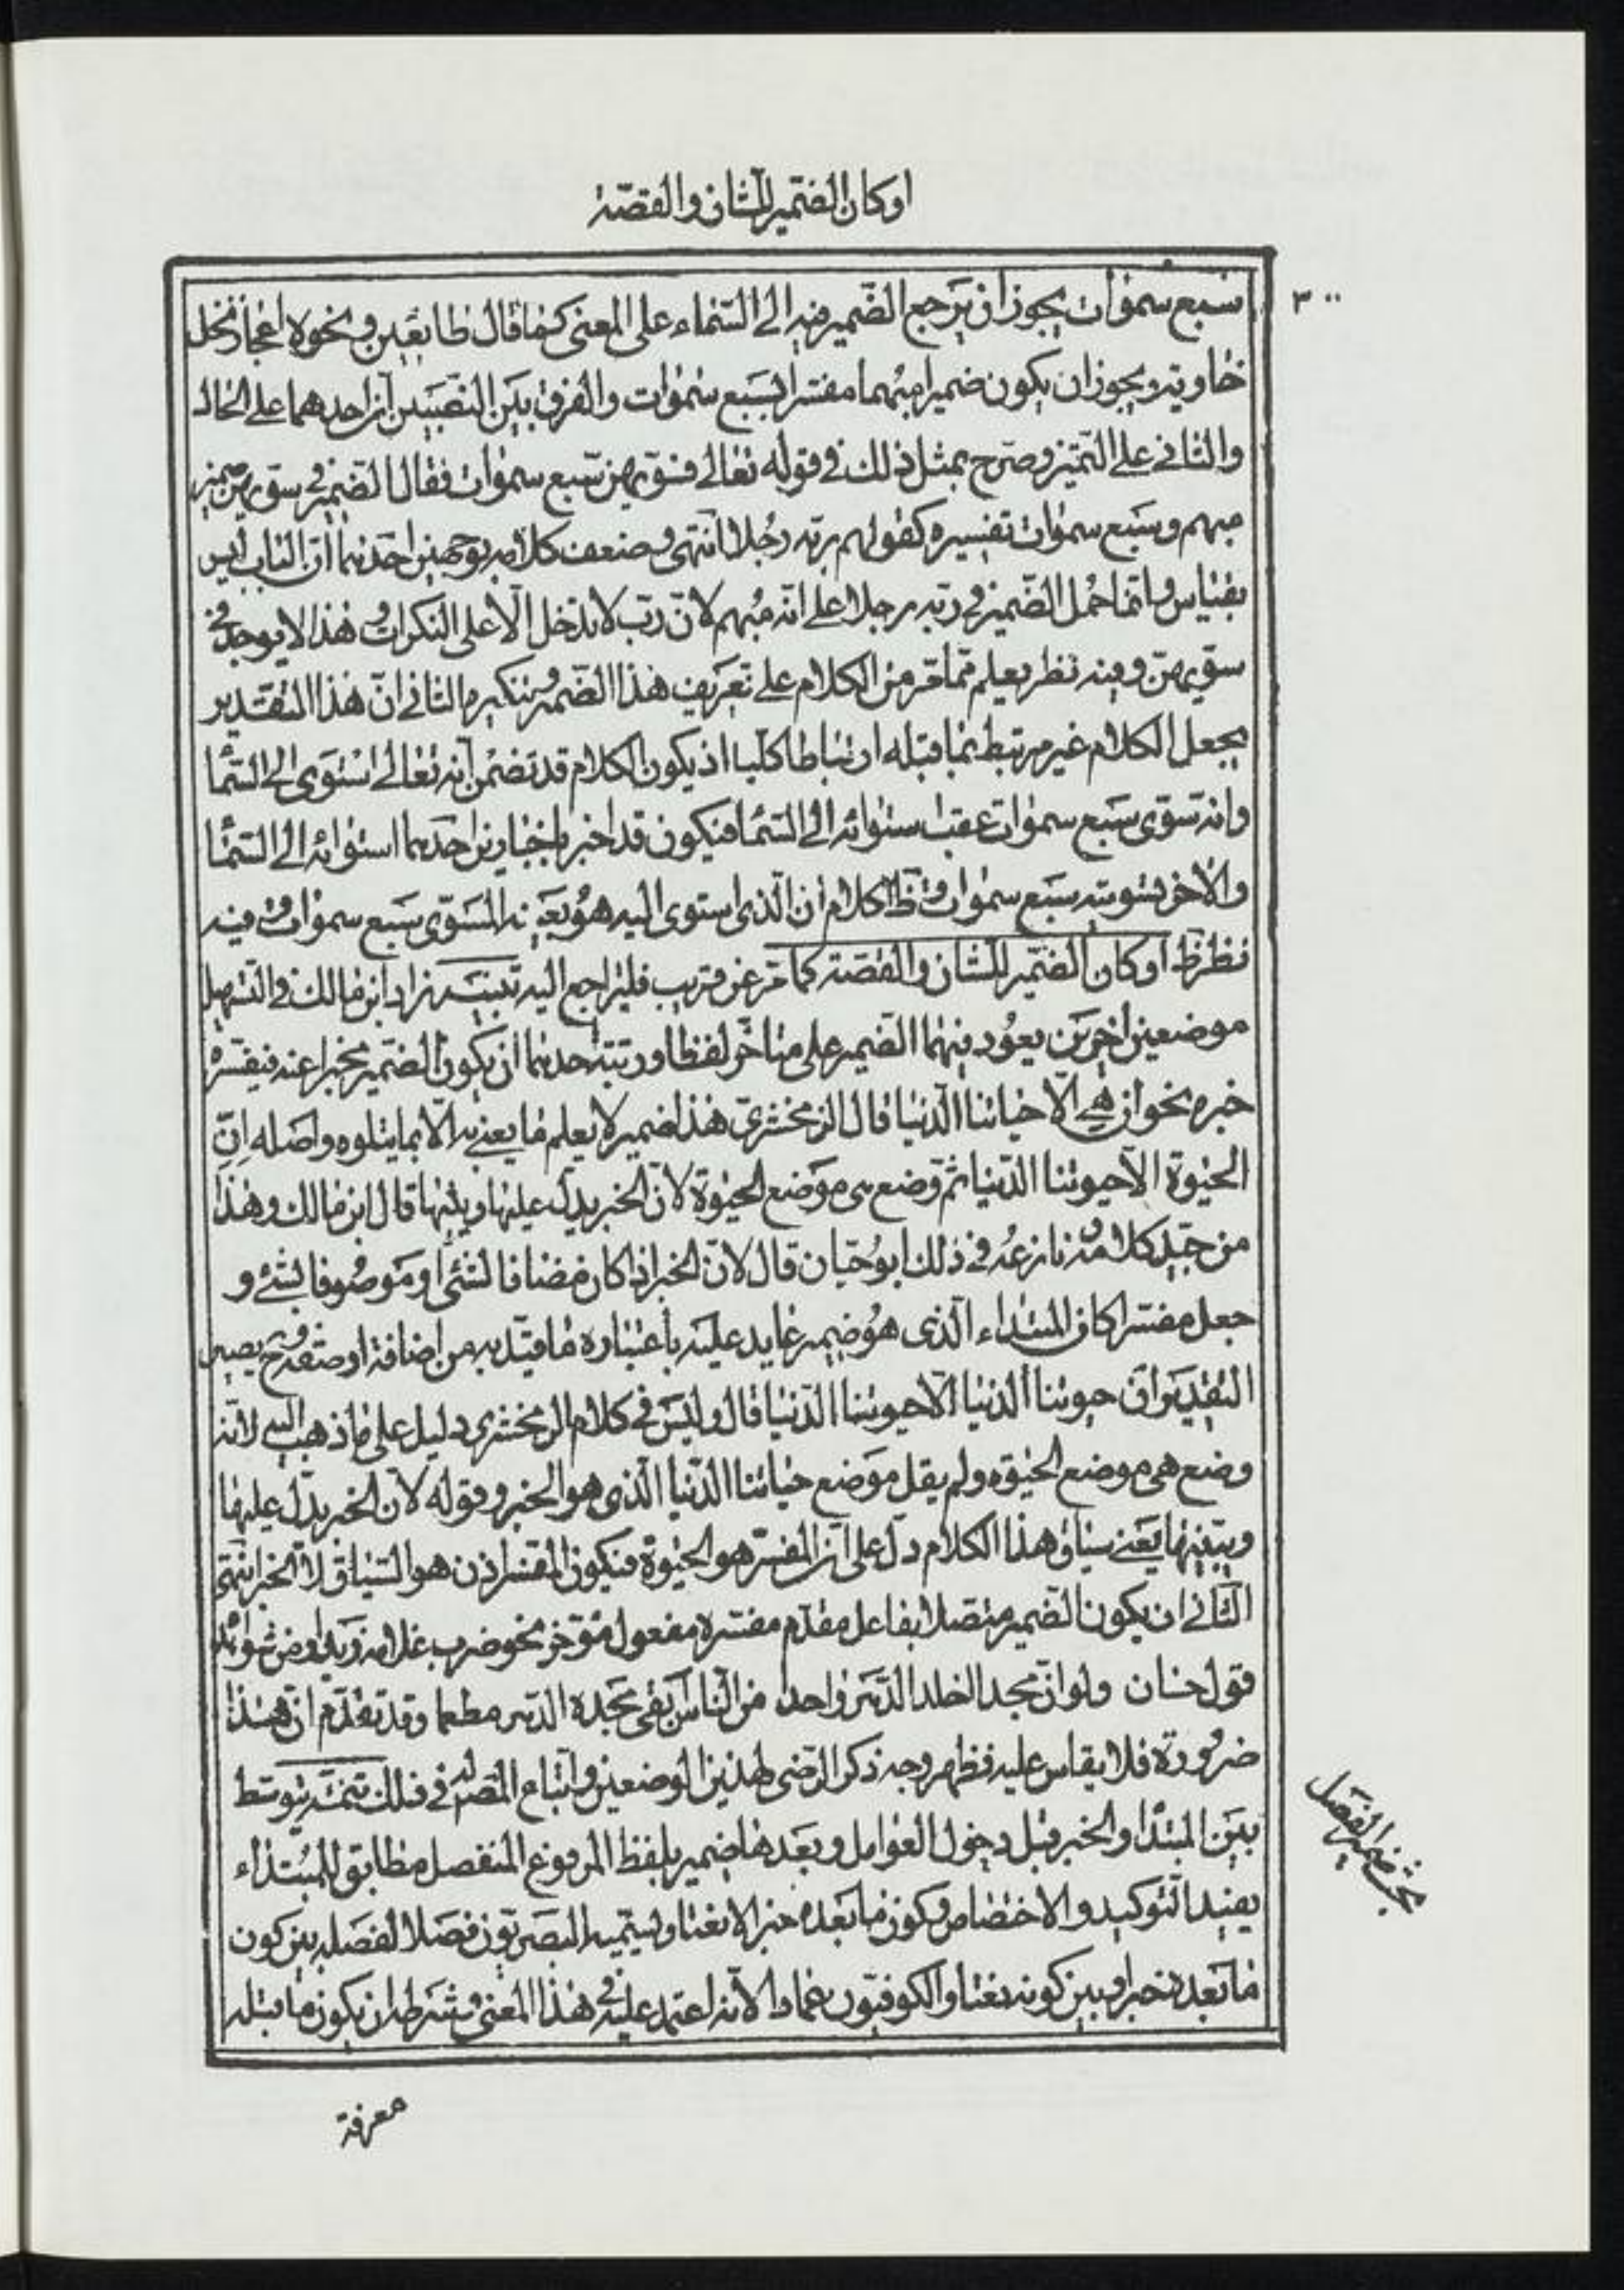 اوكان الضمير للشان والقصة
٣٠٠
سبع سموات يجوز ان يرجع الضمير فيه الى السماء على المعنى كما قال طايعين ونحوه اعجاز نخل
خاوية ويجوز ان يكون ضميرا مبهما مفسرا بسبع سموات والفرق بين النصبين ان احدهما على الحال
والثاني على التميز وصرح بمثل ذلك في قوله تعالى فسويهن سبع سموات فقال الضمير في سويهن ضمير
مبهم وسبع سموات تفسيره كقولهم ربه رجلا انتهى وضعف كلامه بوجهين احدهما ان الباب ليس
بقياس وانما حمل الضمير في ربه رجلا على انه مبهم لان رب لا تدخل الا على النكرات وهذا لا يوجد في
سويهن وفيه نظر يعلم مما مر من الكلام على تعريف هذا الضمير وتنكيره والثاني ان هذا التقدير
يجعل الكلام غير مرتبط بما قبله ارتباطا كليا اذ يكون الكلام قد تضمن انه تعالى استوى الى السما
وانه سوى سبع سموات عقب استوائه الى السما فيكون قد اخبر باخبارين احدهما استوائه الى السما
والاخر تسويته سبع سموات وظ الكلام ان الذى استوى اليه هو بعينه المسوى سبع سموات وفيه
نظر ظ اوكان الضمير للشان والقصة كما مر عن قريب فليراجع اليه تنبيه زاد ابن مالك في التسهيل
موضعين اخرين يعود فيهما الضمير على متاخر لفظا ورتبة احدهما ان يكون الضمير مخبرا عنه فيفسره
خبره نحو ان هي الا حياتنا الدنيا قال الزمخشرى هذا ضمير لا يعلم ما يعنى به الا بما يتلوه واصله ان
الحيوة الا حيوتنا الدنيا ثم وضع هى موضع الحيوة لان الخبر يدل عليها ويبينها قال ابن مالك وهذا
من جيد كلامه ونازعه في ذلك ابو حيان قال لان الخبر اذا كان مضافا لشئ او موصوفا بشئ و
جعل مفسرا كان المبتداء الذى هو ضمير عايد عليه باعتباره ما قيد به من اضافة او صفة وح يصير
التقدير ان حيوتنا الدنيا الا حيوتنا الدنيا قال وليس في كلام الزمخشرى دليل على ما ذهب اليه لانه
وضع هى موضع الحيوة ولم يقل موضع حياتنا الدنيا الذى هو الخبر وقوله لان الخبر يدل عليها
ويبينها يعنى سياق هذا الكلام دل على ان المفسر هو الحيوة فيكون المفسر اذن هو السياق لا الخبر انتهى
الثاني ان يكون الضمير متصلا بفاعل مقدم مفسره مفعول مؤخر نحو ضرب غلامه زيدا ومن شواهده
قول حسان ولو ان مجدا اخلد الدهر واحدا من الناس ابقى مجده الدهر مطعما وقد تقدم ان هذا
ضرورة فلا يقاس عليه فظهر وجه ذكر الرضى لهذين الموضعين واتباع المص له في ذلك تتمة يتوسط
بين المبتدا والخبر قبل دخول العوامل وبعدها ضمير بلفظ المرفوع المنفصل مطابق للمبتداء
يفيد التوكيد والاختصاص وكون ما بعده خبرا لا نعتا ويسميه البصريون فصلا لفصله بين كون
ما بعده خبرا وبين كونه نعتا والكوفيون عمادا لانه اعتمد عليه في هذا المعنى وشرطه ان يكون ما قبله
بحث ضمير الفصل
معرفة